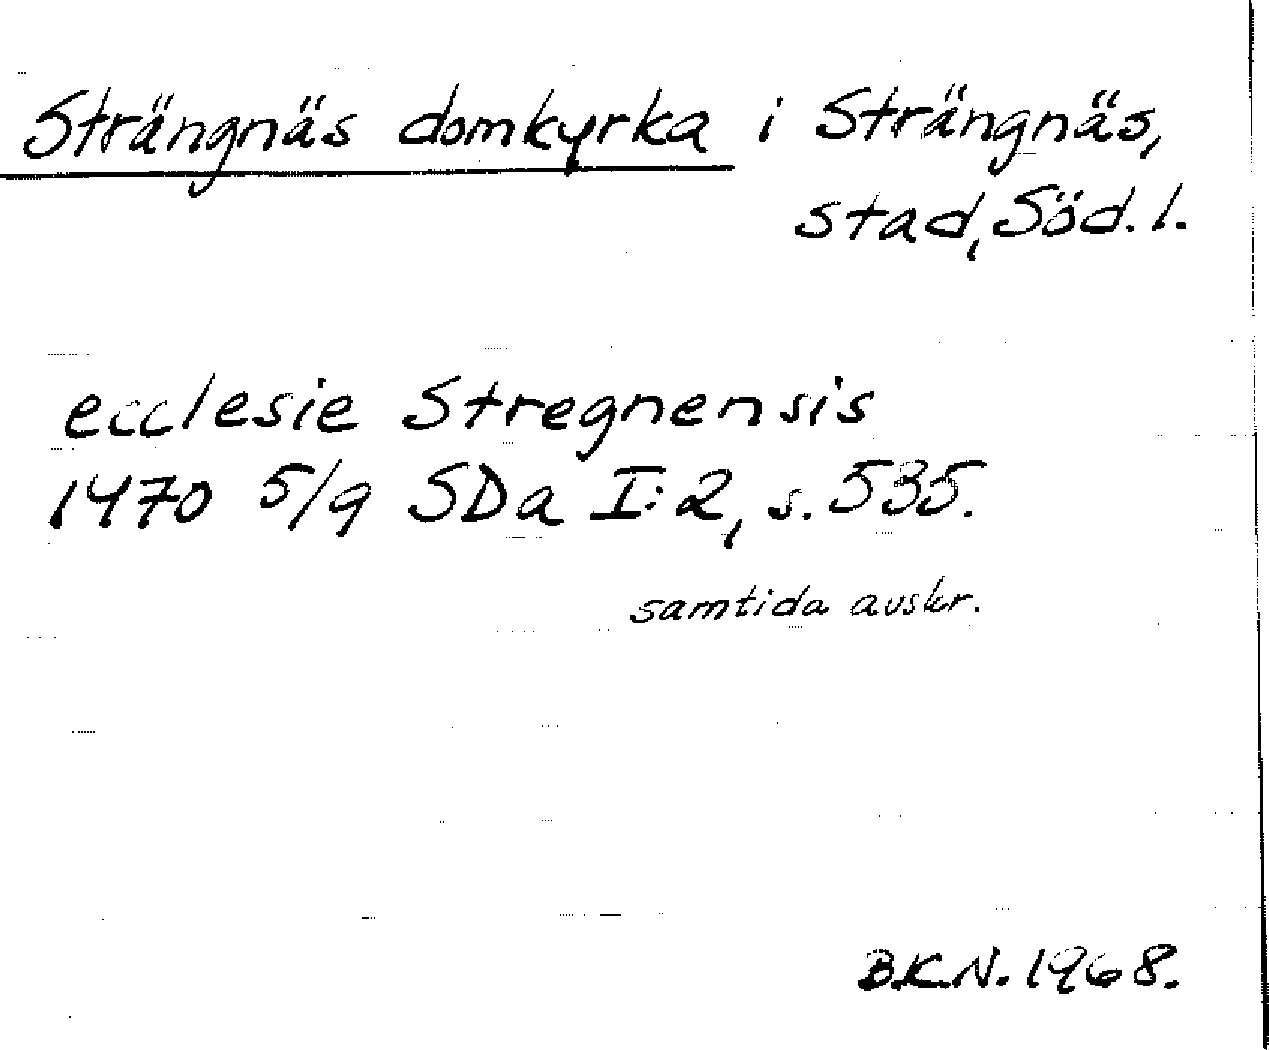 Strängnäs domkyrka i Strängnäs,
stad, Söd. l.
ecclesie Stregnensis
1470 5/9 SDa I:2, s. 535.
samtida avskr.
B.K.N. 1968.